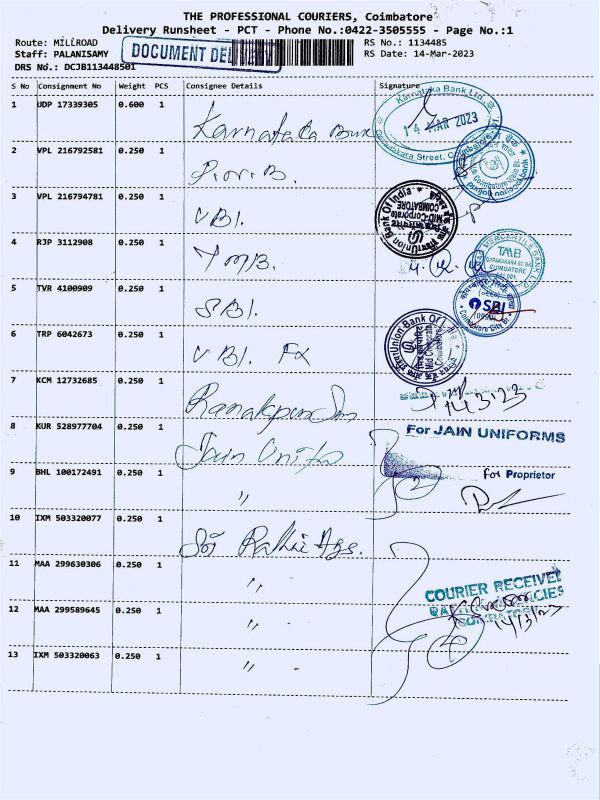 THE PROFESSIONAL COURIERS, Coimbatore
Delivery Runsheet - PCT - Phone No.:0422-3505555 - Page No.:1
Route: MILLROAD
RS No.: 1134485
Staff: PALANISAMY
DOCUMENT DELIVERY
RS Date: 14-Mar-2023
DRS No.: DCJB113448501
S No Consignment No Weight PCS Consignee Details Signature
1 UDP 17339305 0.600 1 Karnataka Bank
Karnataka Bank Ltd.,
14 MAR 2023
Street, Coimbatore
2 VPL 216792581 0.250 1
punjab national bank
3 VPL 216794781 0.250 1 UBI.
Union Bank Of India
Mid-Corporate
COIMBATORE
4 RJP 3112908 0.250 1 TMB.
MERCANTILE BANK LTD.
TMB
COIMBATORE
5 TVR 4100909 0.250 1 SBI.
SBI
Coimbatore City Br.
6 TRP 6042673 0.250 1 UBI. FX
Union Bank Of
Mid Corporate
Coimbatore
7 KCM 12732685 0.250 1
14/3/23
8 KUR 528977704 0.250 1 Jain Unifo
For JAIN UNIFORMS
9 BHL 100172491 0.250 1 "
for Proprietor
10 IXM 503320077 0.250 1 Sri Rakhi Ags.
11 MAA 299630306 0.250 1 "
COURIER RECEIVED
12 MAA 299589645 0.250 1 "
14/3/23
13 IXM 503320063 0.250 1 "